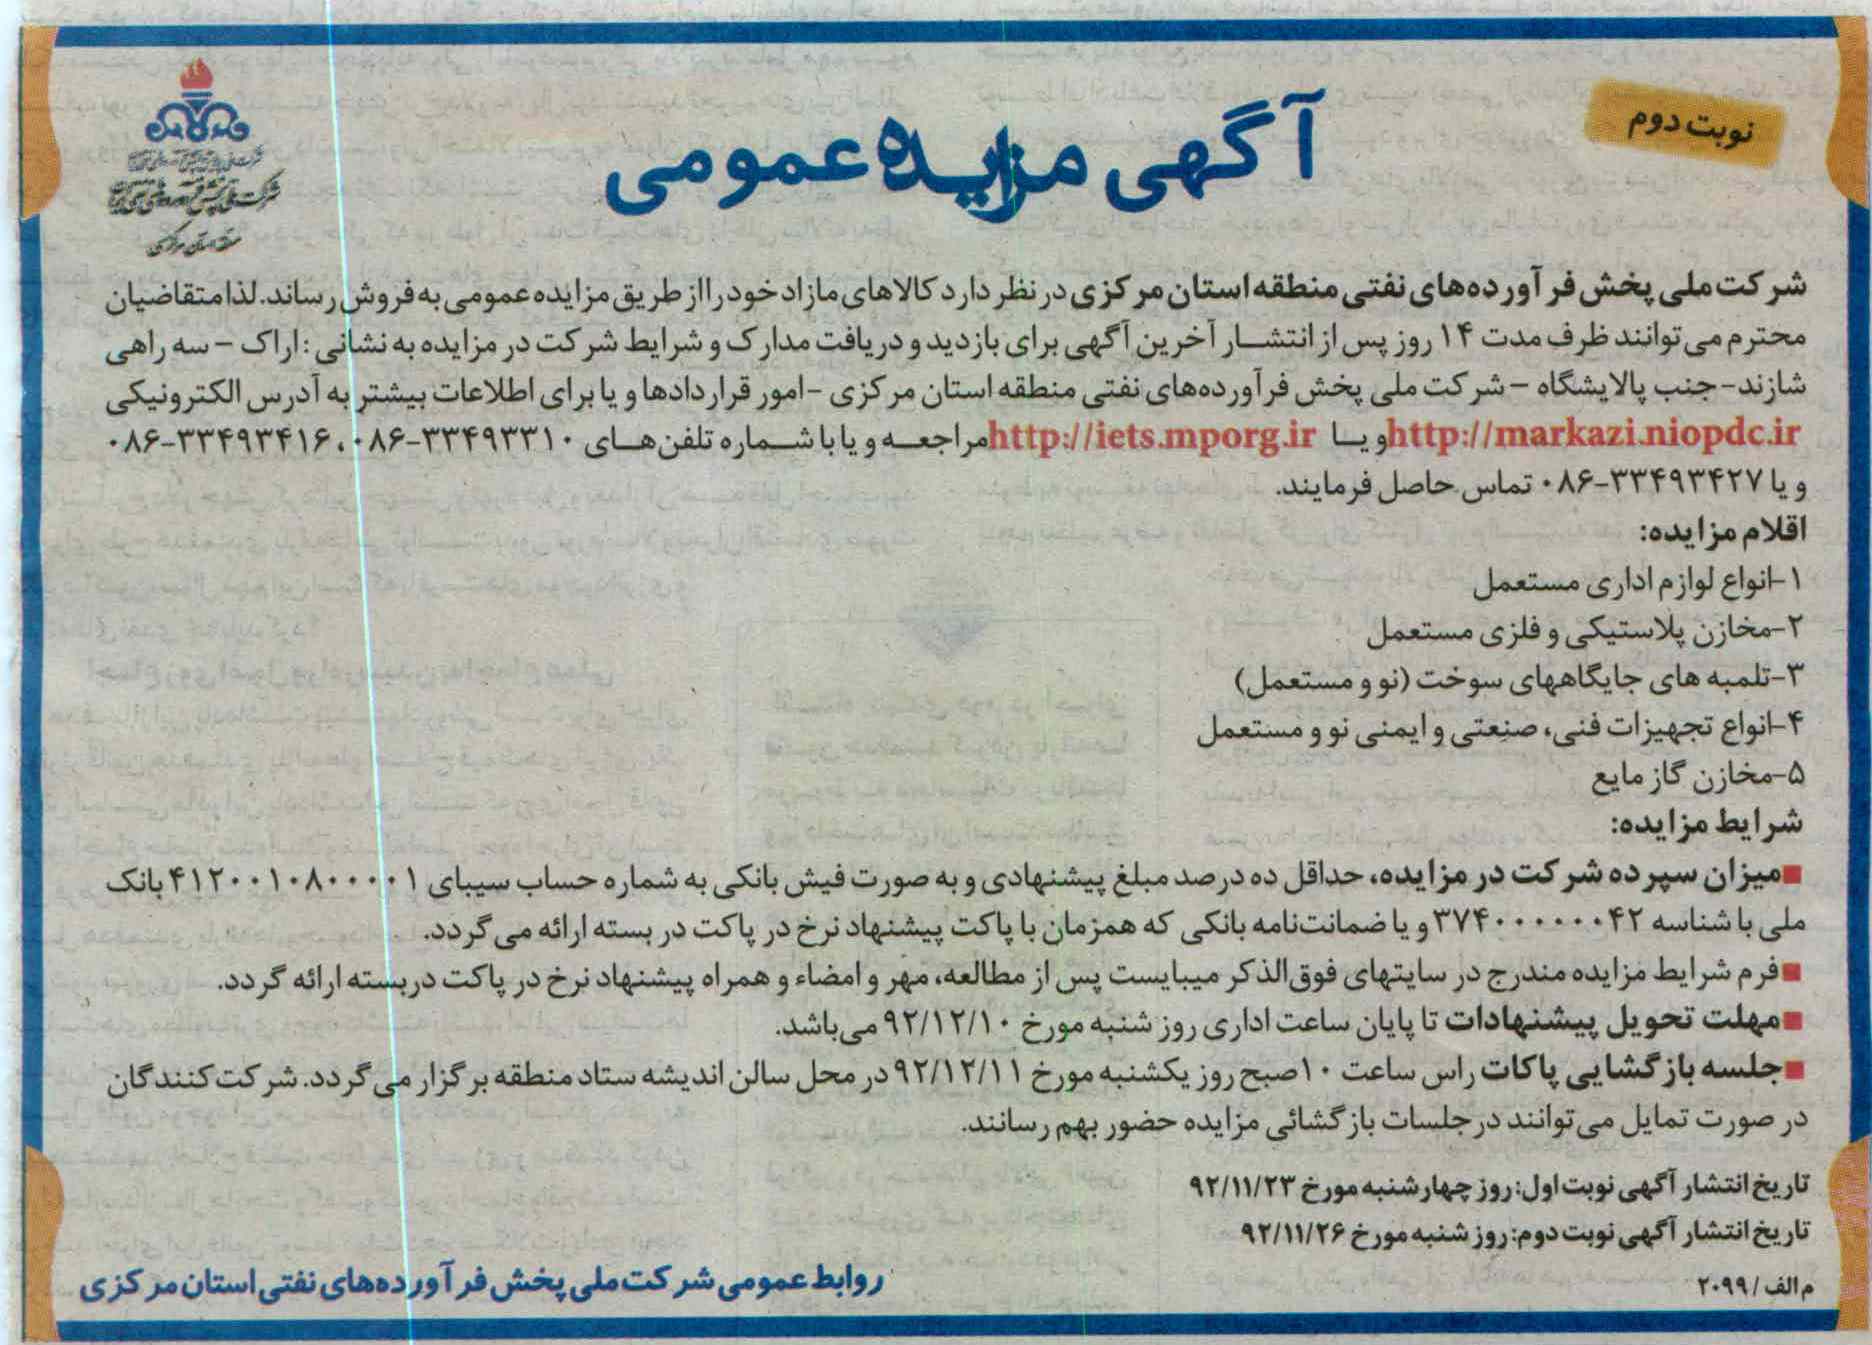 نوبت دوم
آگهی مزایده عمومی
شرکت ملی پخش فرآورده‌های نفتی ایران
منطقه استان مرکزی
شرکت ملی پخش فرآورده‌های نفتی منطقه استان مرکزی در نظر دارد کالاهای مازاد خود را از طریق مزایده عمومی به فروش رساند. لذا متقاضیان
محترم می‌توانند ظرف مدت ۱۴ روز پس از انتشار آخرین آگهی برای بازدید و دریافت مدارک و شرایط شرکت در مزایده به نشانی: اراک – سه راهی
شازند- جنب پالایشگاه – شرکت ملی پخش فرآورده‌های نفتی منطقه استان مرکزی -امور قراردادها و یا برای اطلاعات بیشتر به آدرس الکترونیکی
http://markazi.niopdc.ir و یا http://iets.mporg.ir مراجعه و یا با شماره تلفن‌های ۳۳۴۹۳۳۱۰-۰۸۶، ۳۳۴۹۳۴۱۶-۰۸۶
و یا ۳۳۴۹۳۴۲۷-۰۸۶ تماس حاصل فرمایند.
اقلام مزایده:
۱-انواع لوازم اداری مستعمل
۲-مخازن پلاستیکی و فلزی مستعمل
۳-تلمبه های جایگاههای سوخت (نو و مستعمل)
۴-انواع تجهیزات فنی، صنعتی و ایمنی نو و مستعمل
۵-مخازن گاز مایع
شرایط مزایده:
■میزان سپرده شرکت در مزایده، حداقل ده درصد مبلغ پیشنهادی و به صورت فیش بانکی به شماره حساب سیبای ۴۱۲۰۰۱۰۸۰۰۰۰۱ بانک
ملی با شناسه ۳۷۴۰۰۰۰۰۰۰۴۲ و یا ضمانت‌نامه بانکی که همزمان با پاکت پیشنهاد نرخ در پاکت در بسته ارائه می گردد.
■فرم شرایط مزایده مندرج در سایتهای فوق‌الذکر میبایست پس از مطالعه، مهر و امضاء و همراه پیشنهاد نرخ در پاکت دربسته ارائه گردد.
■مهلت تحویل پیشنهادات تا پایان ساعت اداری روز شنبه مورخ ۹۲/۱۲/۱۰ می‌باشد.
■جلسه بازگشایی پاکات راس ساعت ۱۰صبح روز یکشنبه مورخ ۹۲/۱۲/۱۱ در محل سالن اندیشه ستاد منطقه برگزار می‌گردد. شرکت کنندگان
در صورت تمایل می‌توانند در جلسات بازگشائی مزایده حضور بهم رسانند.
تاریخ انتشار آگهی نوبت اول: روز چهارشنبه مورخ ۹۲/۱۱/۲۳
تاریخ انتشار آگهی نوبت دوم: روز شنبه مورخ ۹۲/۱۱/۲۶
م الف / ۲۰۹۹
روابط عمومی شرکت ملی پخش فرآورده‌های نفتی استان مرکزی